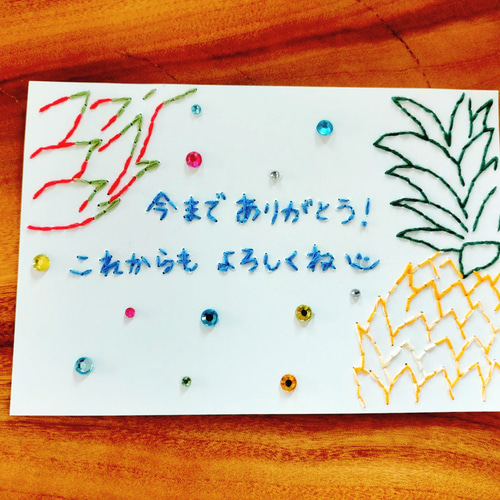 今まで ありがとう!
これからも よろしくね